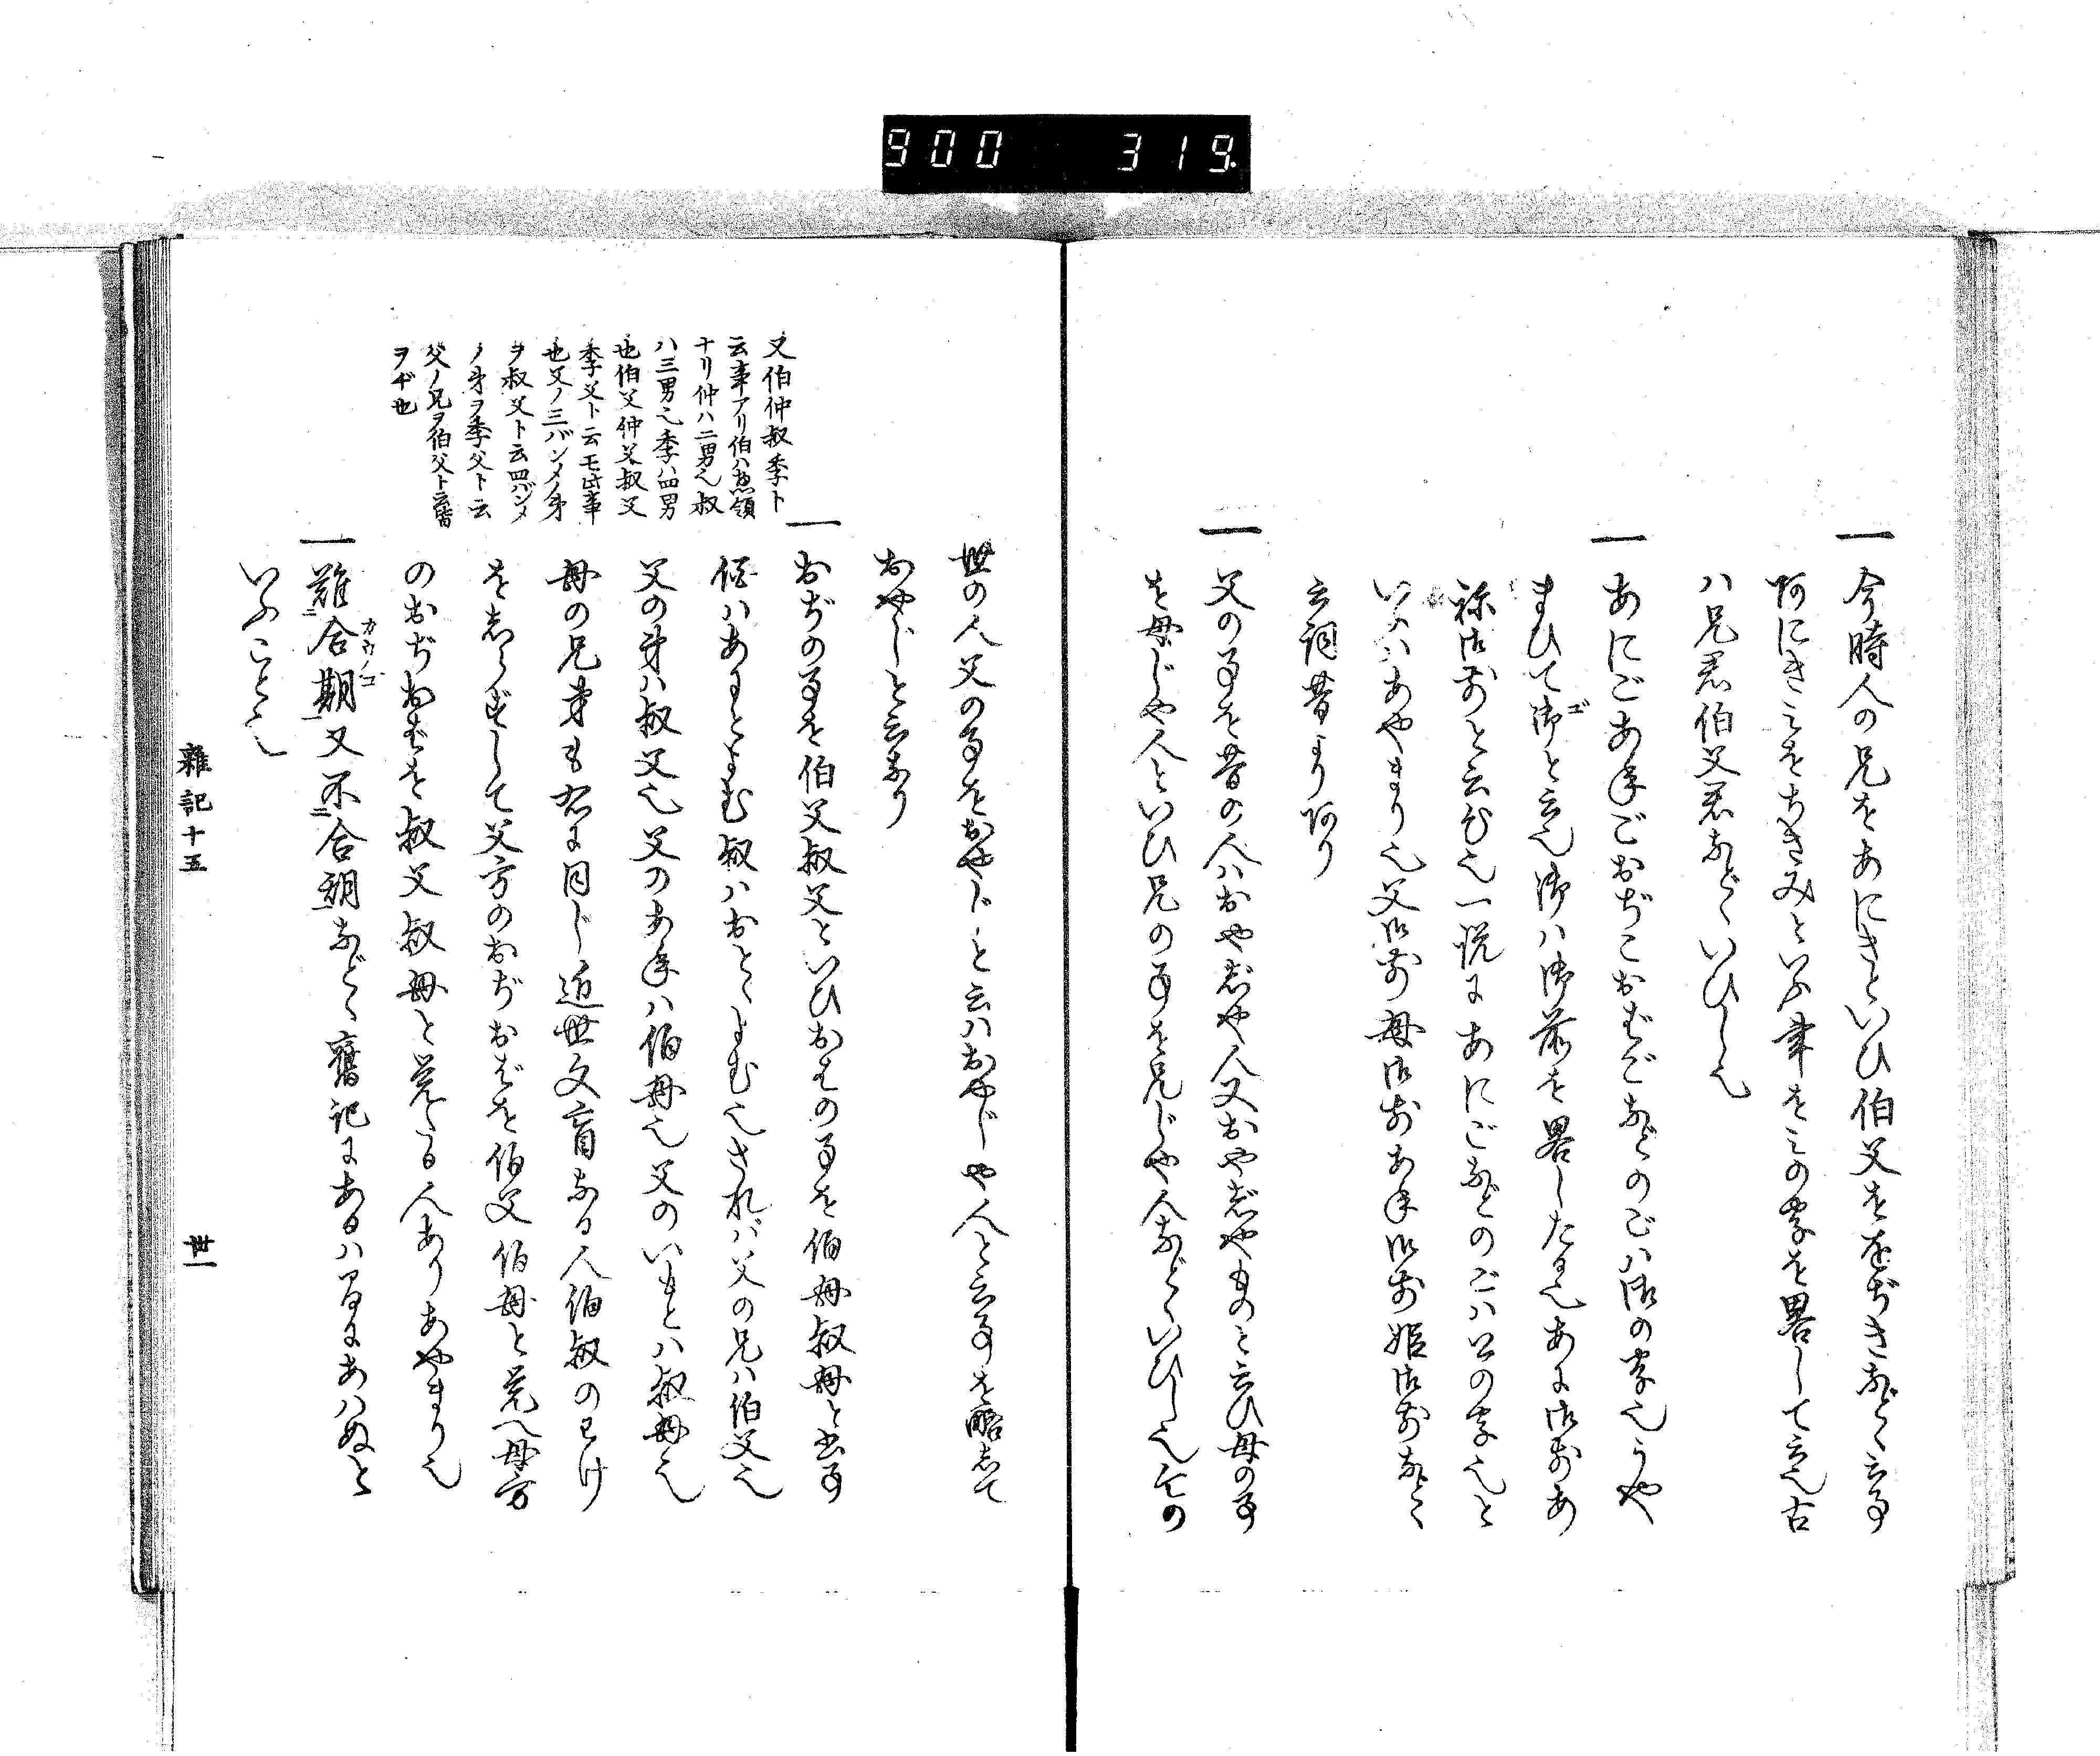 900 319.
一 今時人の兄をあにきといひ伯父をおぢきなど云事
阿にきミをちきみといふ事をミの字を畧して云也古
ハ兄君伯父君などいひし也
一 あにごあねごおぢごおばごなどのごハ御の字也うや
まひて御と云也御ハ御前を畧したる也あに御前あ
ね御前と云也一説にあにごなどのごハ公の字也と
いふハあやまり也父御前母御前あね御前姫御前など
云詞昔より阿り
一 父の事を昔の人ハおやぢや人又おやぢやものと云ひ母の事
を母じや人といひ兄の事を兄じや人などいひし也今の
世の人父の事をおやじと云ハおやじや人と云事を略して
おやじと云なり
一 おぢの事を伯父叔父といひおばの事を伯母叔母と書事
伯ハあにとよむ叔ハおとゝよむ也されバ父の兄ハ伯父也
父の弟ハ叔父也父のあねハ伯母也父のいもとハ叔母也
母の兄弟も右に同じ近世文盲なる人伯叔のわけ
をしらずして父方のおぢおばを伯父伯母と覚へ母方
のおぢおばを叔父叔母と覚たる人ありあやまり也
又伯仲叔季ト
云事アリ伯ハ惣領
ナリ仲ハ二男也叔
ハ三男也季ハ四男
也伯父仲父叔父
季父ト云モ此事
也父ノ三バンメノ弟
ヲ叔父ト云四バンメ
ノ弟ヲ季父ト云
父ノ兄ヲ伯父ト云皆
ヲヂ也
一 難二合期一又不二合期一など舊記にあるハ間にあハぬと
カウノゴ
いふこと也
雜記十五
卅一